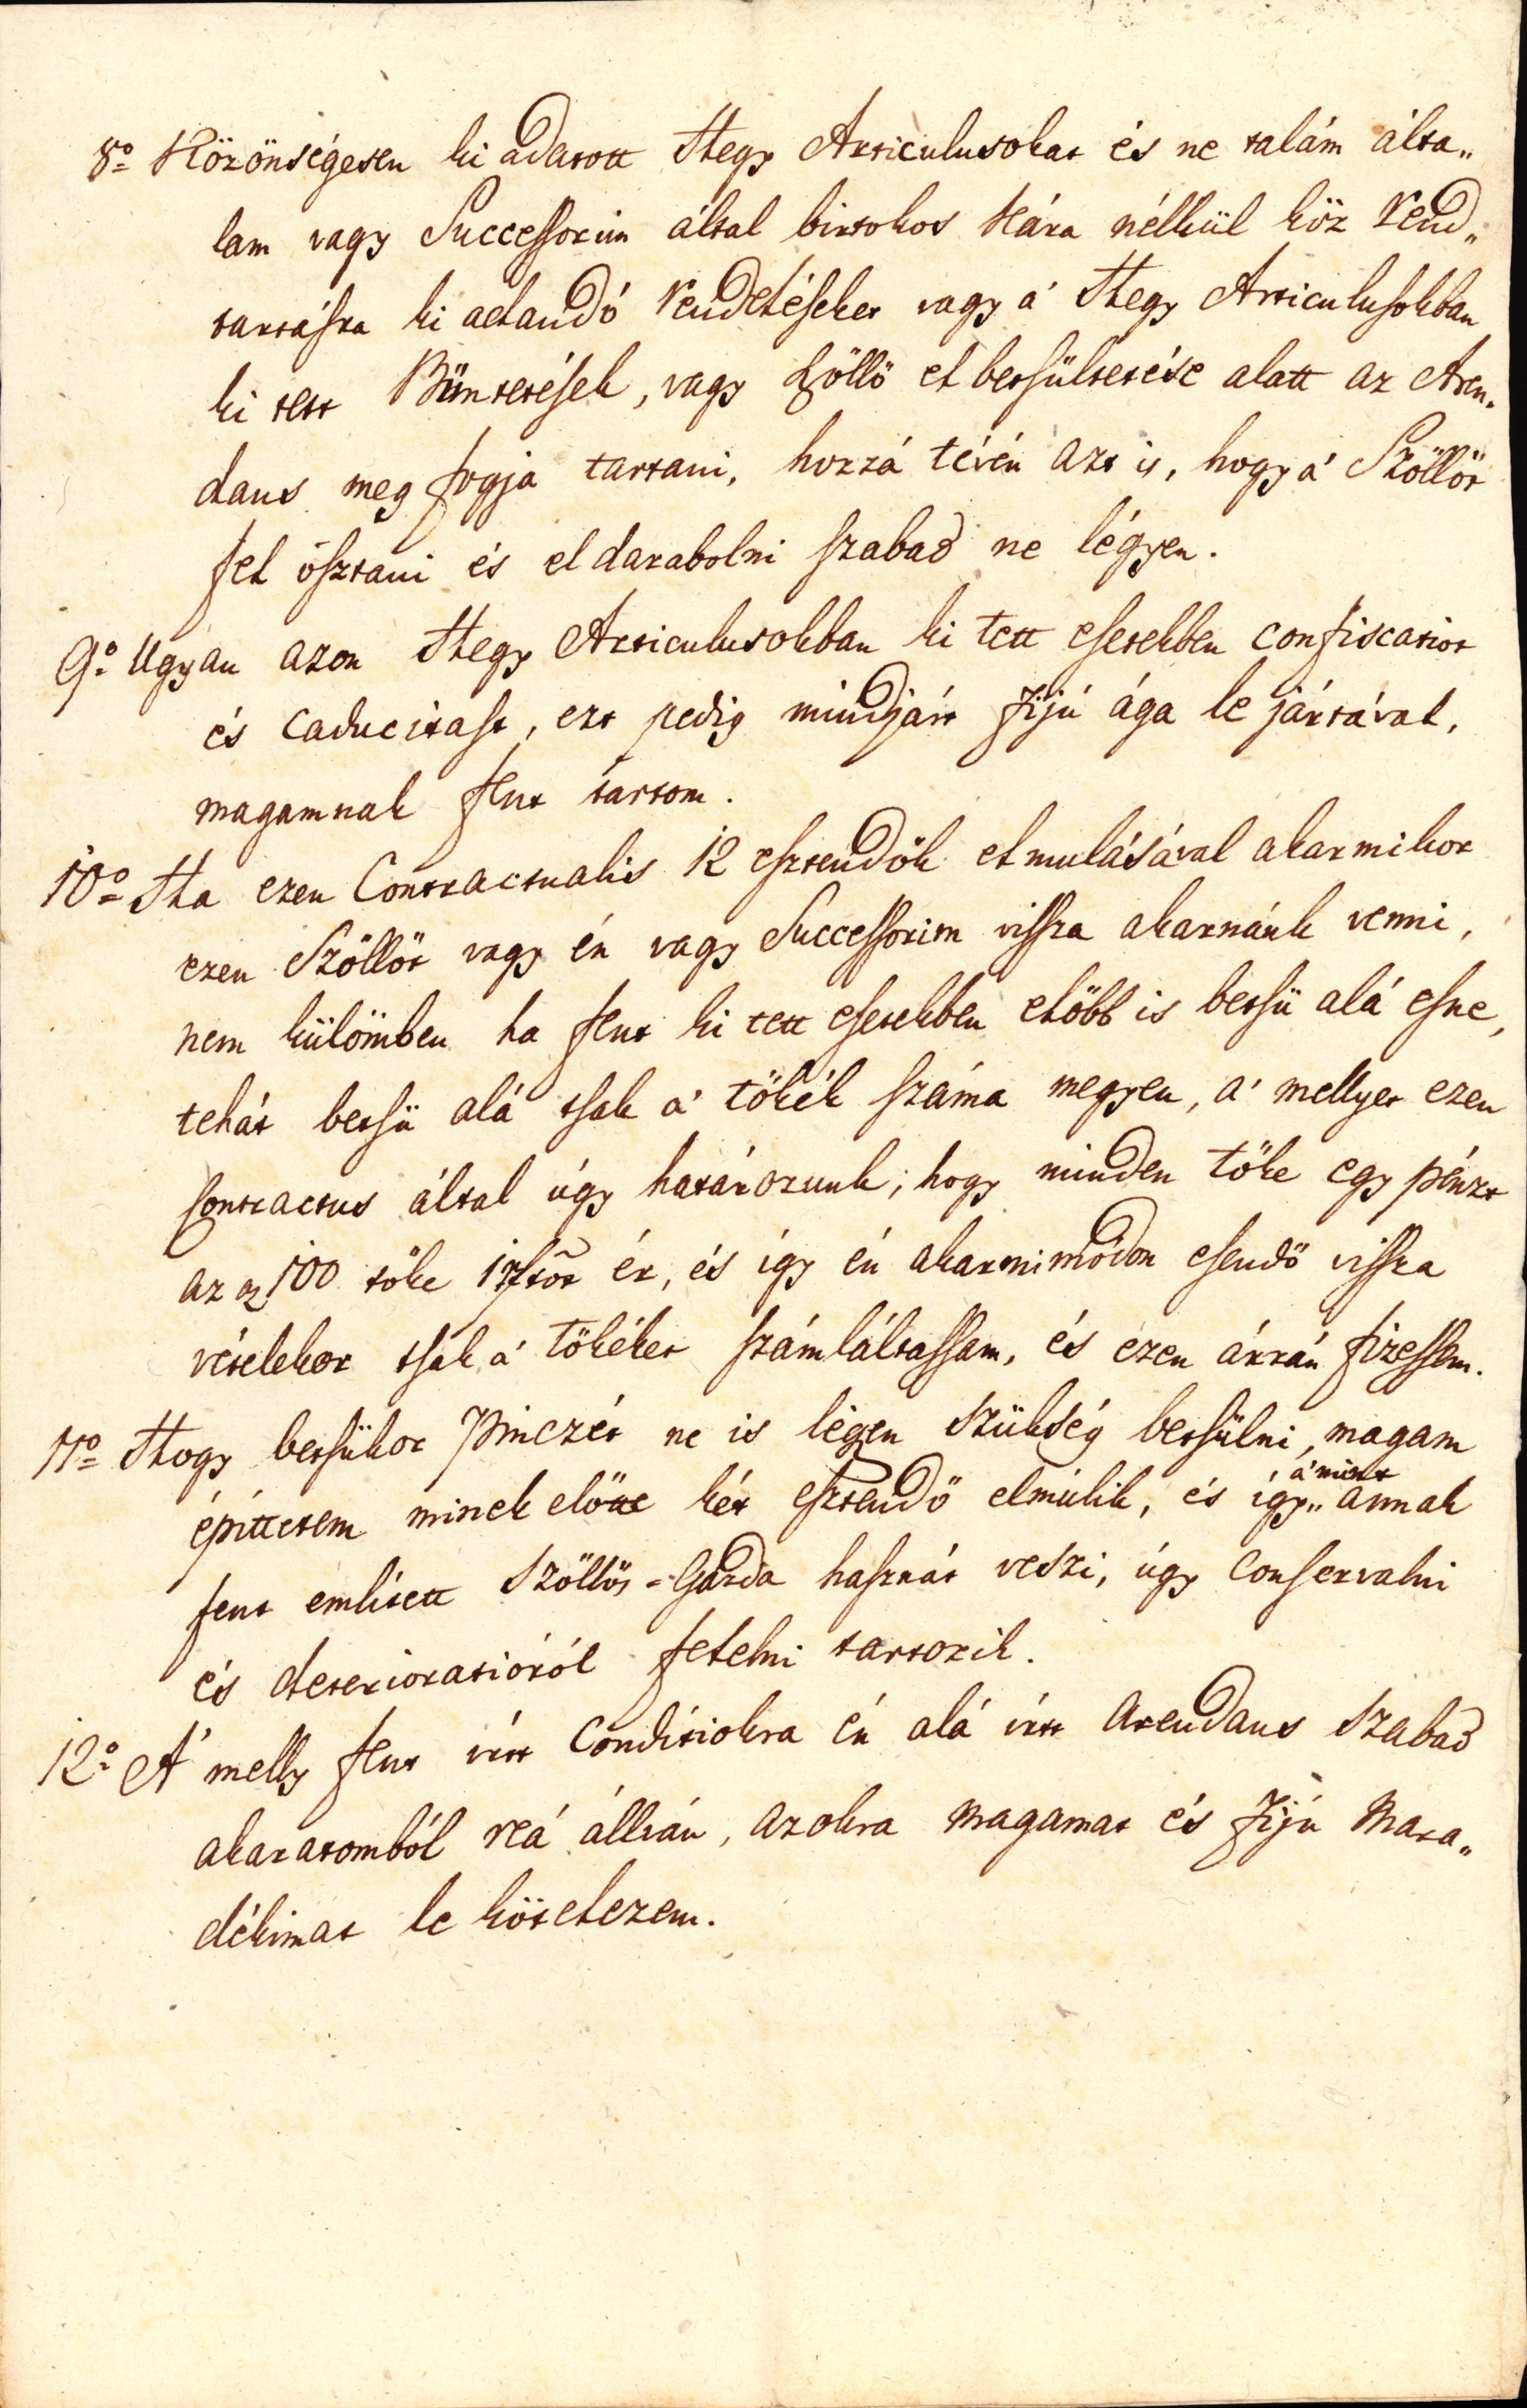 8º Közönségesen ki adatott Hegy Articulusokat és ne talám álta„
lam vagy Successorim által birtokos Kára nélkül köz rend„
tartásra ki adandó rendeléseket vagy á Hegy Articulusokban
ki tett Büntetések, vagy Szöllö el betsültetése alatt az Aren„
dans meg fogja tartani, hozzá tévén azt is, hogy á Szöllöt
fel osztani és el darabolni szabad ne légyen.
9º Ugyan azon Hegy Articulusokban ki tett esetekben confiscatiot
és caducitast, ezt pedig mindjárt Fijú ága le jártával,
magamnak fent tartom.
10º Ha ezen Contractualis 12 esztendök elmulásával akarmikor
ezen Szöllöt vagy én vagy Successorim vissza akarnánk venni,
nem külömben ha fent ki tett esetekben elöbb is betsü alá esne,
tehát betsü alá tsak á tökék száma megyen, á mellyet ezen
Contractus által úgy határozunk; hogy minden töke egy pénzt
az az 100 töke 1 ftot ér, és így én akarmi módon esendö vissza
vételekor tsak á tökéket számláltassam, és ezen árrán fizessem.
11º Hogy betsükor Pinczét ne is légyen szükség betsülni, magam
épittetem minek elötte két esztendö elmúlik, és így„ á mint annak
fent emlitett Szöllös-Gazda hasznát veszi, úgy conservalni
és deterioratióról felelni tartozik.
12º A' melly fent irtt Conditiokra én alá irtt Arendans szabad
akaratomból reá állván, azokra magamat és Fijú Mara„
dékimat le kötelezem.